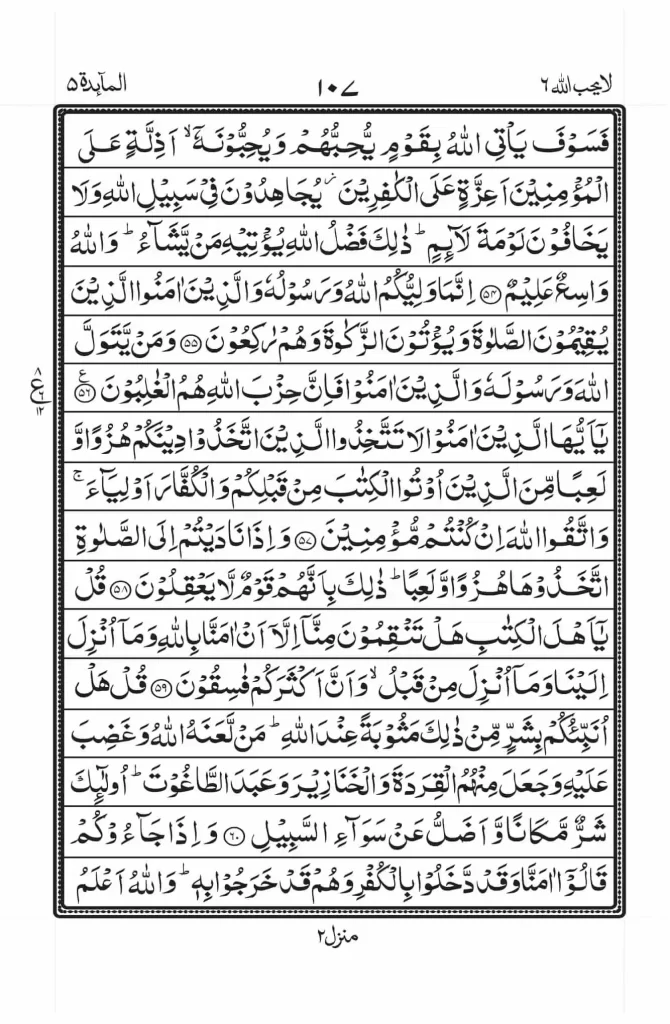 لایحب الله ٦
١٠٧
المآىِٕدة ٥
فَسَوْفَ یَاْتِی اللّٰهُ بِقَوْمٍ یُّحِبُّهُمْ وَیُحِبُّوْنَهٗۤ ۙ اَذِلَّةٍ عَلَی
الْمُؤْمِنِیْنَ اَعِزَّةٍ عَلَی الْكٰفِرِیْنَ ؗ یُجَاهِدُوْنَ فِیْ سَبِیْلِ اللّٰهِ وَلَا
یَخَافُوْنَ لَوْمَةَ لَآىِٕمٍ ؕ ذٰلِكَ فَضْلُ اللّٰهِ یُؤْتِیْهِ مَنْ یَّشَآءُ ؕ وَاللّٰهُ
وَاسِعٌ عَلِیْمٌ ﴿۵۴﴾ اِنَّمَا وَلِیُّكُمُ اللّٰهُ وَرَسُوْلُهٗ وَالَّذِیْنَ اٰمَنُوا الَّذِیْنَ
یُقِیْمُوْنَ الصَّلٰوةَ وَیُؤْتُوْنَ الزَّكٰوةَ وَهُمْ رٰكِعُوْنَ ﴿۵۵﴾ وَمَنْ یَّتَوَلَّ
اللّٰهَ وَرَسُوْلَهٗ وَالَّذِیْنَ اٰمَنُوْا فَاِنَّ حِزْبَ اللّٰهِ هُمُ الْغٰلِبُوْنَ ﴿۵۶﴾ ع
٨ ع ٦ ١٢
یٰۤاَیُّهَا الَّذِیْنَ اٰمَنُوْا لَا تَتَّخِذُوا الَّذِیْنَ اتَّخَذُوْا دِیْنَكُمْ هُزُوًا وَّ
لَعِبًا مِّنَ الَّذِیْنَ اُوْتُوا الْكِتٰبَ مِنْ قَبْلِكُمْ وَالْكُفَّارَ اَوْلِیَآءَ ۚ
وَاتَّقُوا اللّٰهَ اِنْ كُنْتُمْ مُّؤْمِنِیْنَ ﴿۵۷﴾ وَاِذَا نَادَیْتُمْ اِلَی الصَّلٰوةِ
اتَّخَذُوْهَا هُزُوًا وَّلَعِبًا ؕ ذٰلِكَ بِاَنَّهُمْ قَوْمٌ لَّا یَعْقِلُوْنَ ﴿۵۸﴾ قُلْ
یٰۤاَهْلَ الْكِتٰبِ هَلْ تَنْقِمُوْنَ مِنَّاۤ اِلَّاۤ اَنْ اٰمَنَّا بِاللّٰهِ وَمَاۤ اُنْزِلَ
اِلَیْنَا وَمَاۤ اُنْزِلَ مِنْ قَبْلُ ۙ وَاَنَّ اَكْثَرَكُمْ فٰسِقُوْنَ ﴿۵۹﴾ قُلْ هَلْ
اُنَبِّئُكُمْ بِشَرٍّ مِّنْ ذٰلِكَ مَثُوْبَةً عِنْدَ اللّٰهِ ؕ مَنْ لَّعَنَهُ اللّٰهُ وَغَضِبَ
عَلَیْهِ وَجَعَلَ مِنْهُمُ الْقِرَدَةَ وَالْخَنَازِیْرَ وَعَبَدَ الطَّاغُوْتَ ؕ اُولٰٓىِٕكَ
شَرٌّ مَّكَانًا وَّاَضَلُّ عَنْ سَوَآءِ السَّبِیْلِ ﴿۶۰﴾ وَاِذَا جَآءُوْكُمْ
قَالُوْۤا اٰمَنَّا وَقَدْ دَّخَلُوْا بِالْكُفْرِ وَهُمْ قَدْ خَرَجُوْا بِهٖ ؕ وَاللّٰهُ اَعْلَمُ
منزل ٢